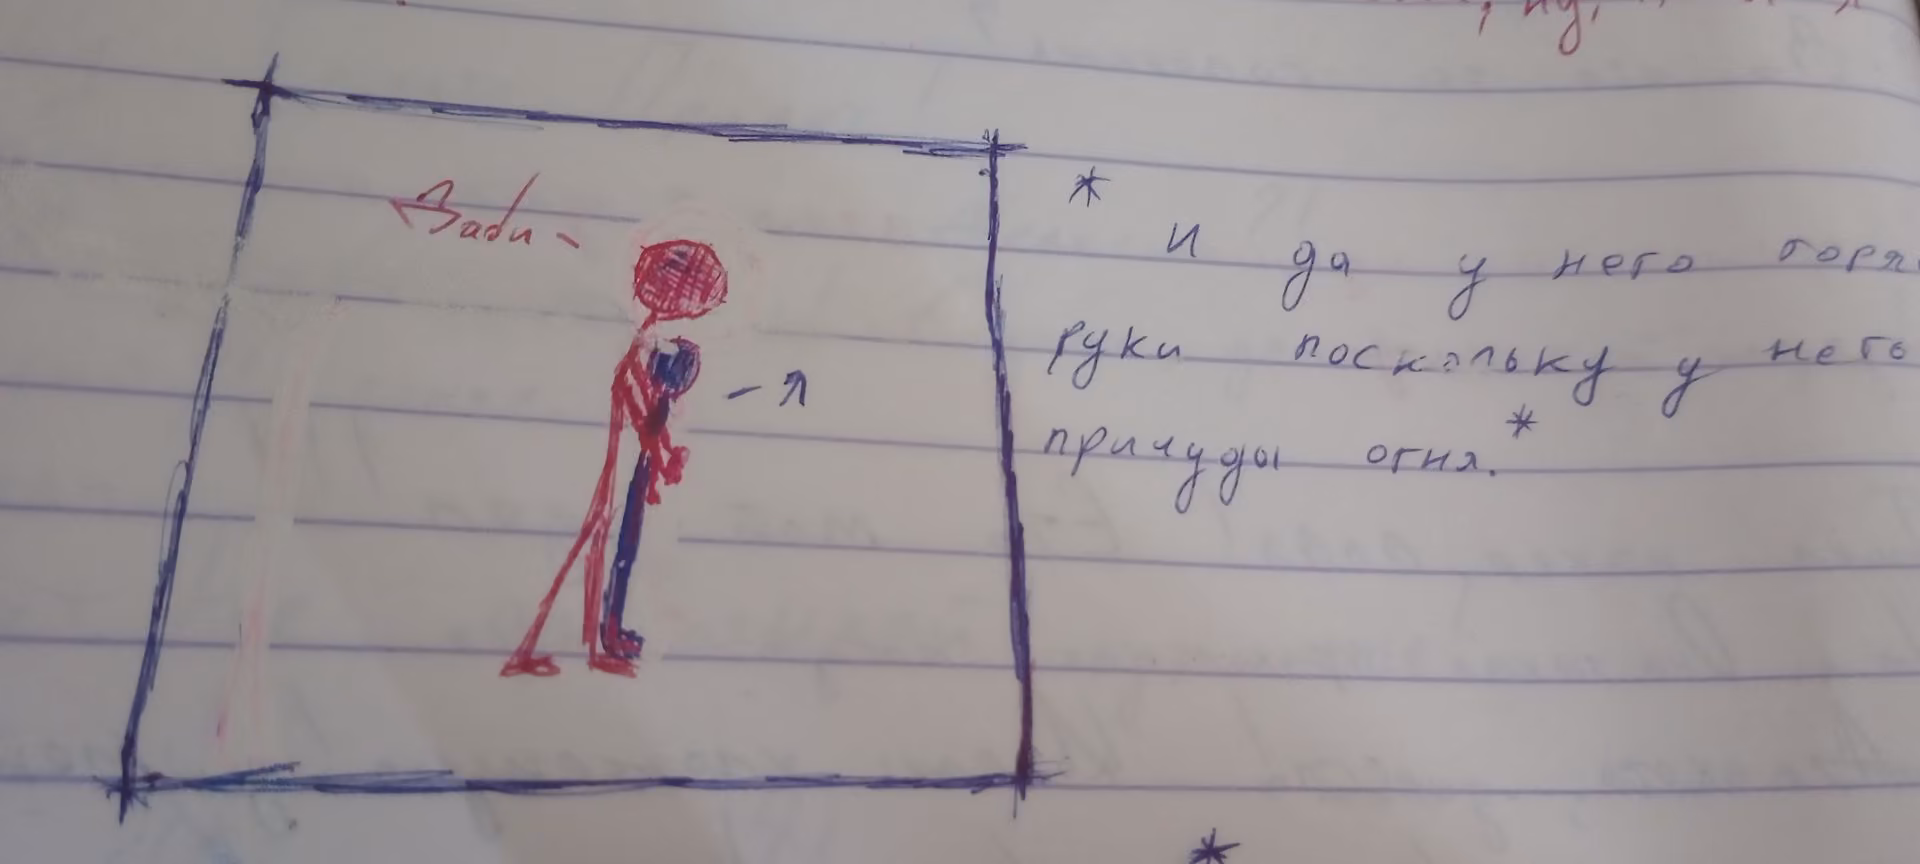 Заби -
- я
*
И да у него горя
руки поскольку у него
причуды огня.*
*